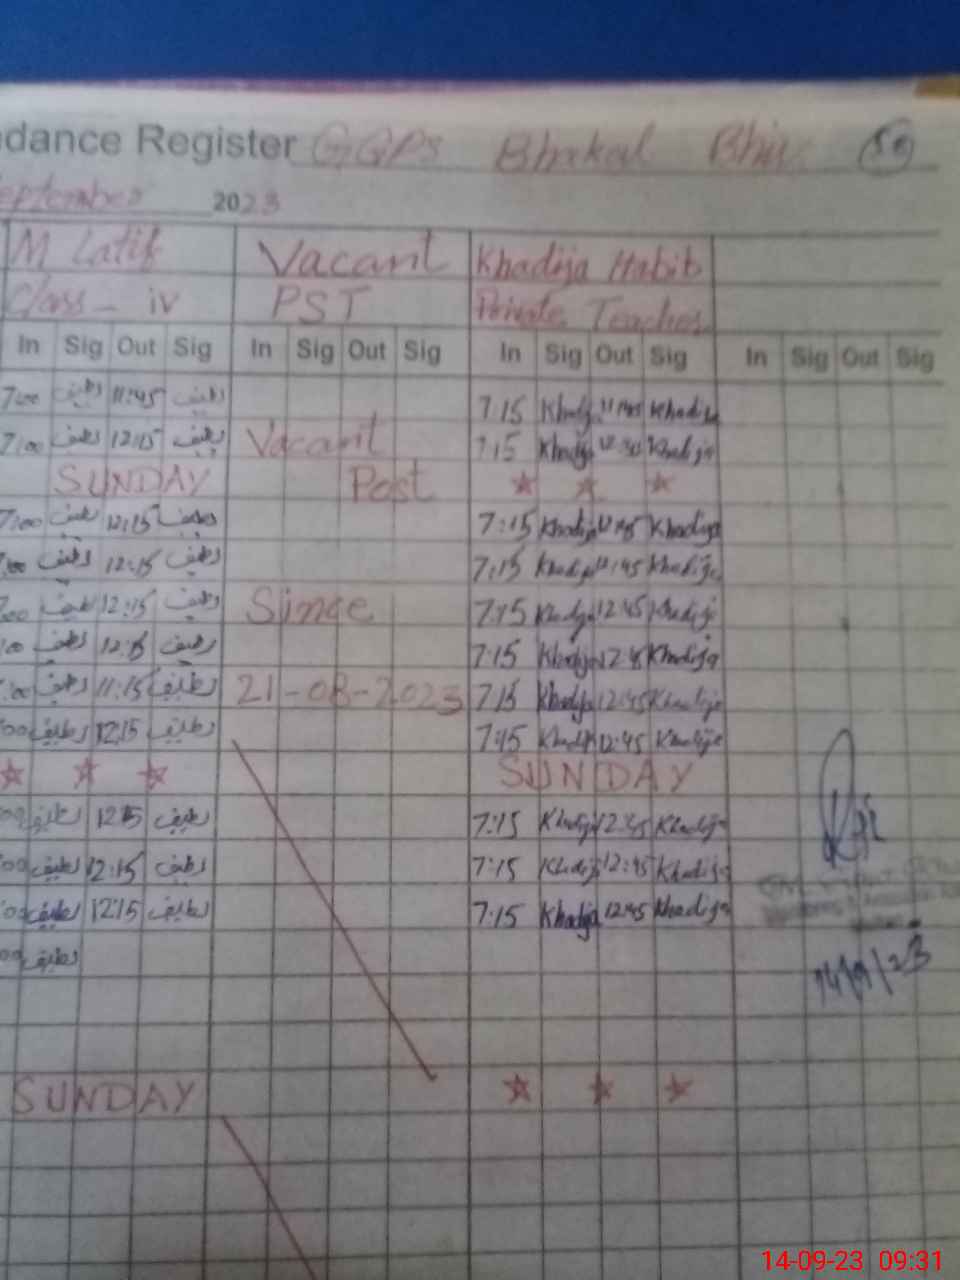 dance Register GGPS Bhakal
September 2023
M Latif Vacant Khadija Habib
Class - iv PST Private Teacher
In Sig Out Sig In Sig Out Sig In Sig Out Sig In Sig Out Sig
7:00 لطیف 11:45 لطیف 7:15 Khadija 11:45 Khadija
7:00 لطیف 12:15 لطیف Vacant 7:15 Khadija 12:30 Khadija
SUNDAY Post
7:00 لطیف 12:15 لطیف 7:15 Khadija Khadija
لطیف 12:15 لطیف 7:15 Khadija 12:45 Khadija
لطیف 12:15 لطیف Since 7:15 Khadija 12:45 Khadija
لطیف 12:15 لطیف 7:15 Khadija 12:45 Khadija
لطیف 11:15 لطیف 21-08-2023 7:15 Khadija 12:45 Khadija
لطیف 12:15 لطیف 7:15 Khadija 12:45 Khadija
SUNDAY
لطیف 12:15 لطیف 7:15 Khadija 12:45 Khadija
لطیف 12:15 لطیف 7:15 Khadija 12:45 Khadija
لطیف 12:15 لطیف 7:15 Khadija 12:45 Khadija
لطیف
14/9/23
SUNDAY
14-09-23 09:31